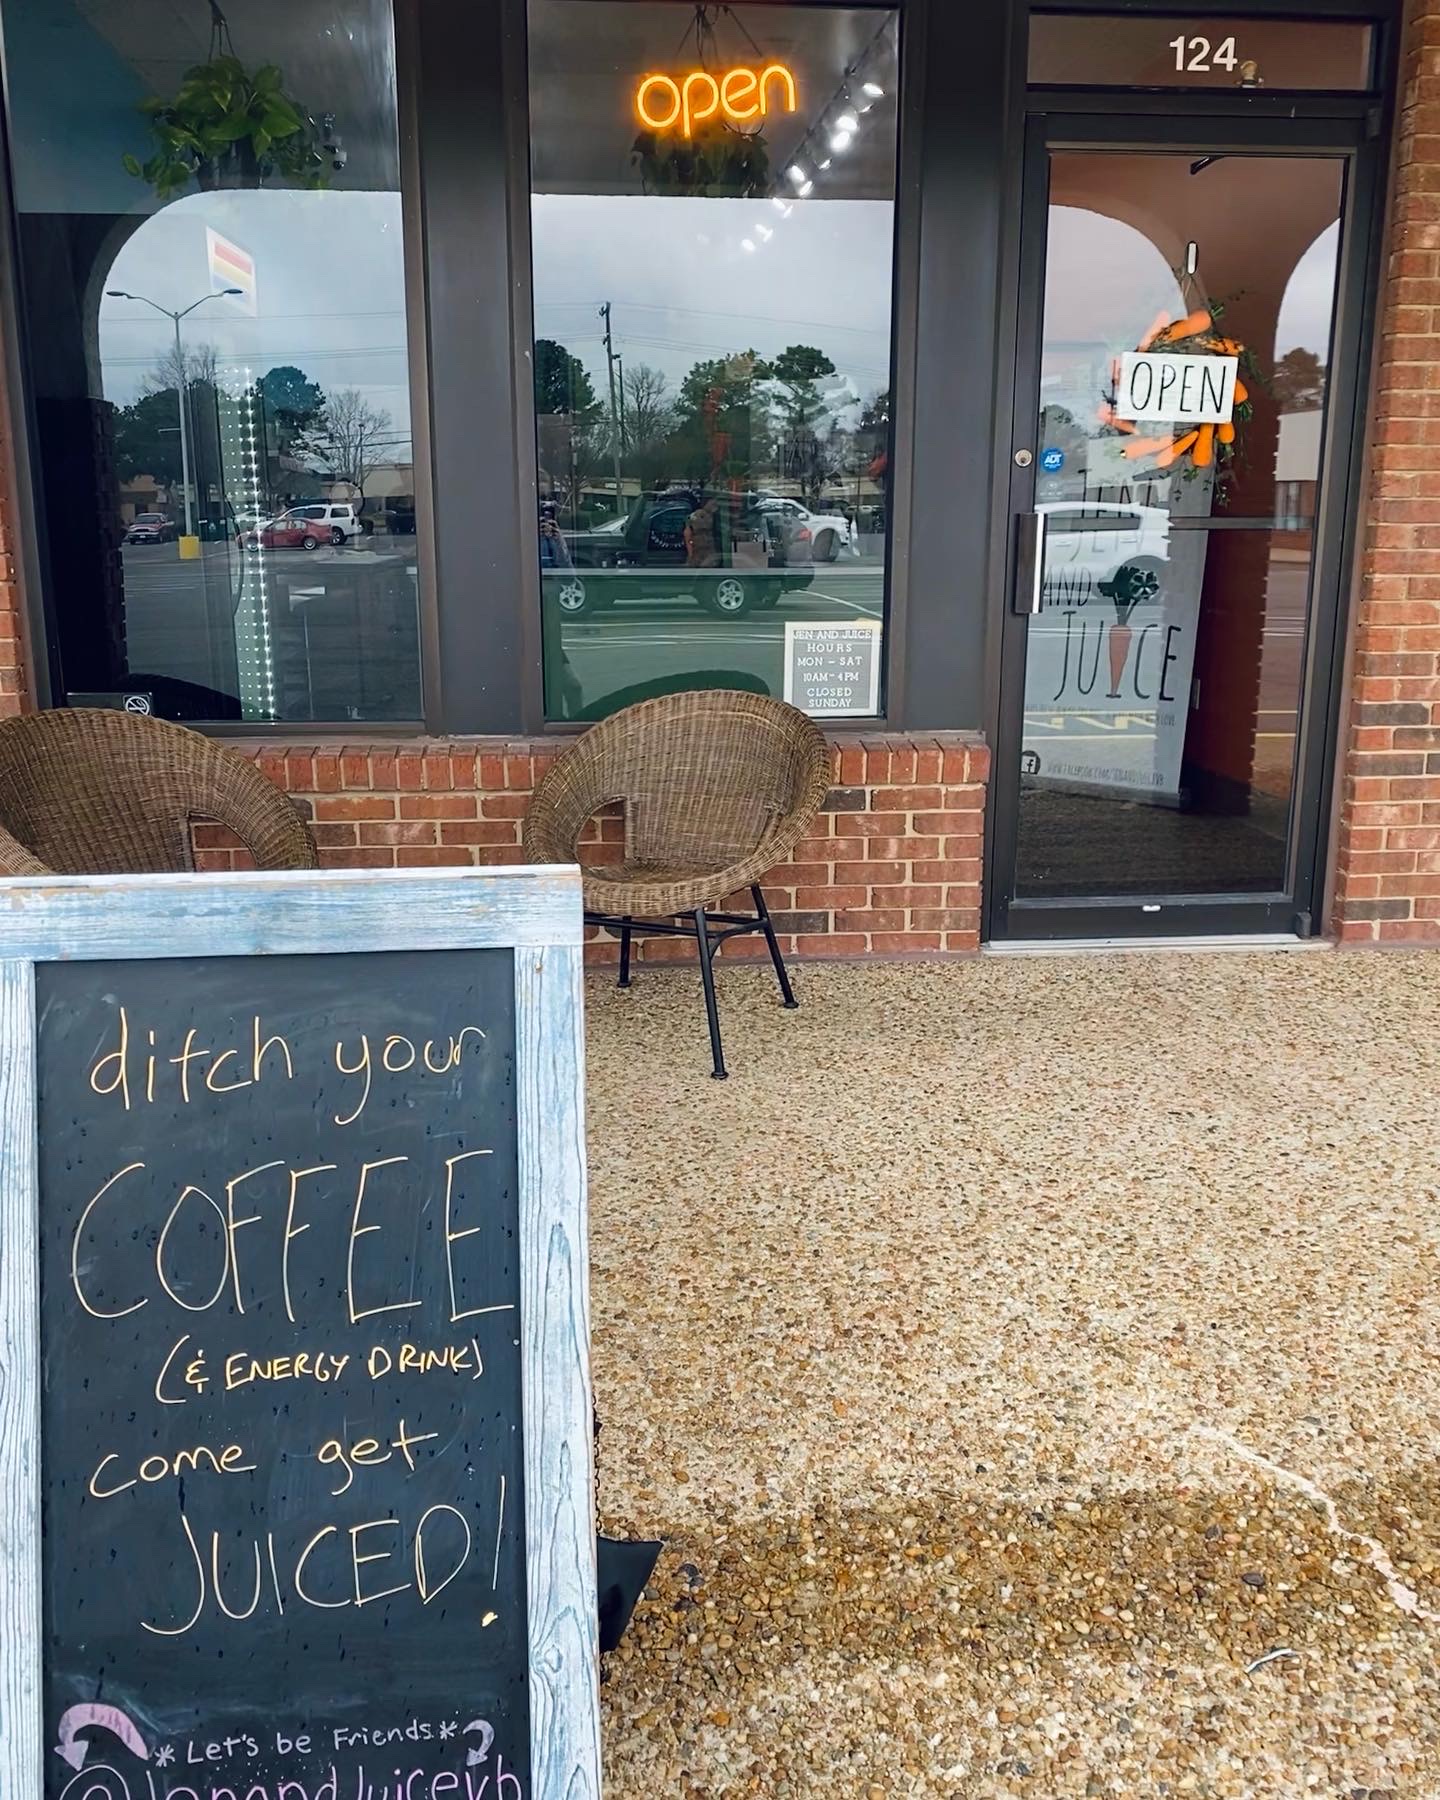 open
124
OPEN
ADT
JEN
AND
JUICE
JEN AND JUICE
HOURS
MON - SAT
10AM - 4PM
CLOSED
SUNDAY
ditch your
COFFEE
(& ENERGY DRINK)
come get
JUICED!
*Let's be Friends*
@JenandJuicevb